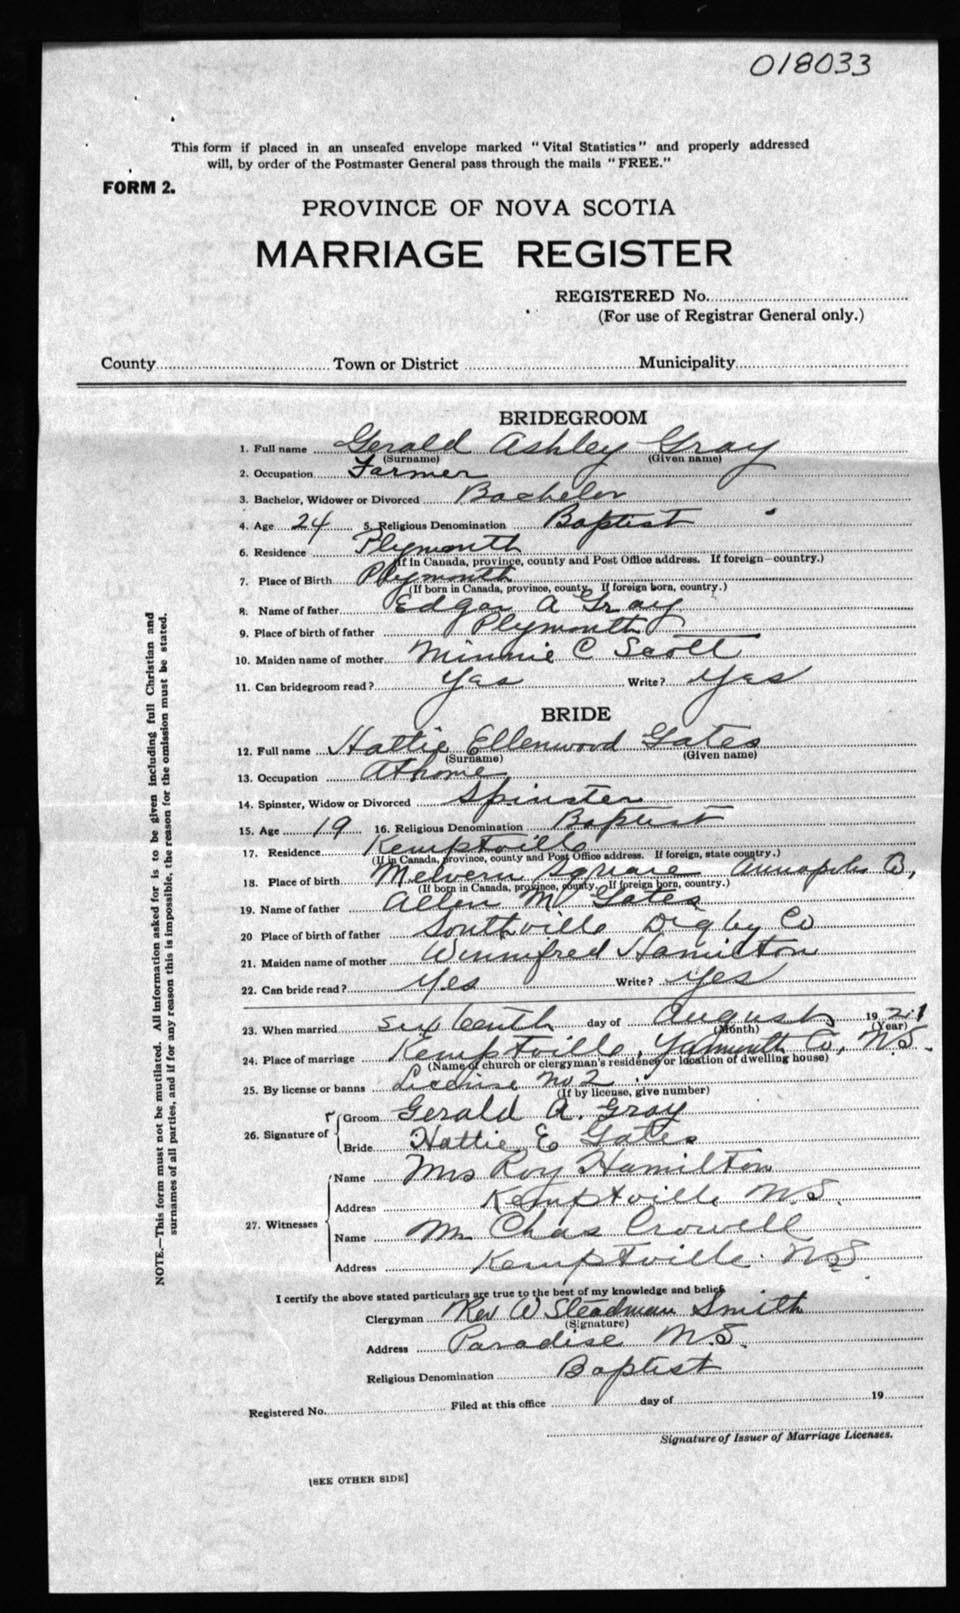 018033
This form if placed in an unsealed envelope marked "Vital Statistics" and properly addressed
will, by order of the Postmaster General pass through the mails "FREE."
FORM 2.
PROVINCE OF NOVA SCOTIA
MARRIAGE REGISTER
REGISTERED No.
(For use of Registrar General only.)
County Town or District Municipality
BRIDEGROOM
1. Full name Gerald Ashley Gray
(Surname) (Given name)
2. Occupation Farmer
3. Bachelor, Widower or Divorced Bachelor
4. Age 24 5. Religious Denomination Baptist
6. Residence Plymouth
(If in Canada, province, county and Post Office address. If foreign—country.)
7. Place of Birth Plymouth
(If born in Canada, province, county. If foreign born, country.)
8. Name of father Edgar A Gray
9. Place of birth of father Plymouth
10. Maiden name of mother Minnie C Scott
11. Can bridegroom read? Yes Write? Yes
BRIDE
12. Full name Hattie Ellenwood Gates
(Surname) (Given name)
13. Occupation At home
14. Spinster, Widow or Divorced Spinster
15. Age 19 16. Religious Denomination Baptist
17. Residence Kemptville
(If in Canada, province, county and Post Office address. If foreign, state country.)
18. Place of birth Melvern Square Annapolis Co,
(If born in Canada, province, county. If foreign born, country.)
19. Name of father Allen M Gates
20 Place of birth of father Southville Digby Co
21. Maiden name of mother Winnifred Hamilton
22. Can bride read? Yes Write? Yes
23. When married sixteenth day of August 1921
(Month) (Year)
24. Place of marriage Kemptville, Yarmouth Co, N.S.
(Name of church or clergyman's residence or location of dwelling house)
25. By license or banns License No 2
(If by license, give number)
26. Signature of Groom Gerald A. Gray
Bride Hattie E Gates
27. Witnesses Name Mrs Roy Hamilton
Address Kemptville N.S.
Name Mr Chas Crowell
Address Kemptville N.S.
I certify the above stated particulars are true to the best of my knowledge and belief.
Clergyman Rev W Steadman Smith
(Signature)
Address Paradise N.S.
Religious Denomination Baptist
Registered No. Filed at this office day of 19
Signature of Issuer of Marriage Licenses.
[SEE OTHER SIDE]
NOTE.—This form must not be mutilated. All information asked for is to be given including full Christian and
surnames of all parties, and if for any reason this is impossible, the reason for the omission must be stated.